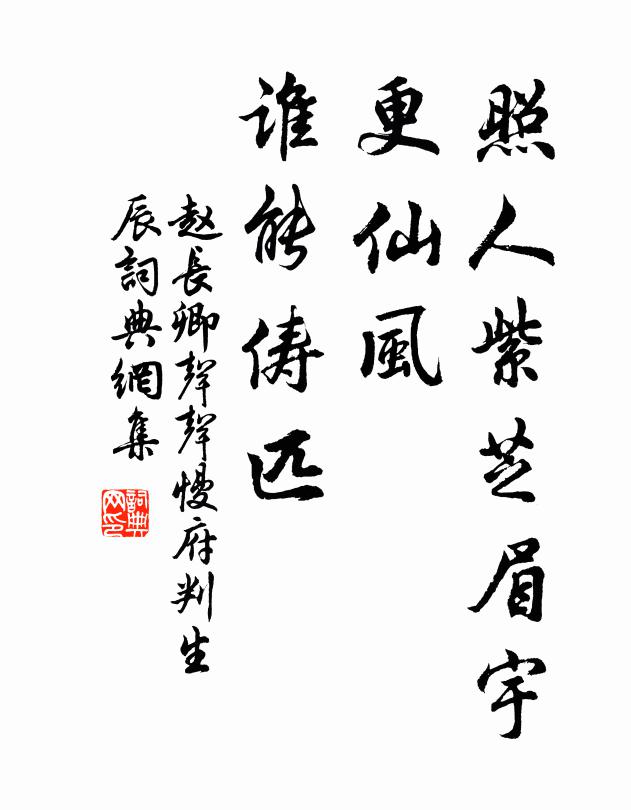 照人紫芝眉宇
更仙風
誰能儔匹
赵長卿聲聲慢府判生
辰詞典網集
詞典网印